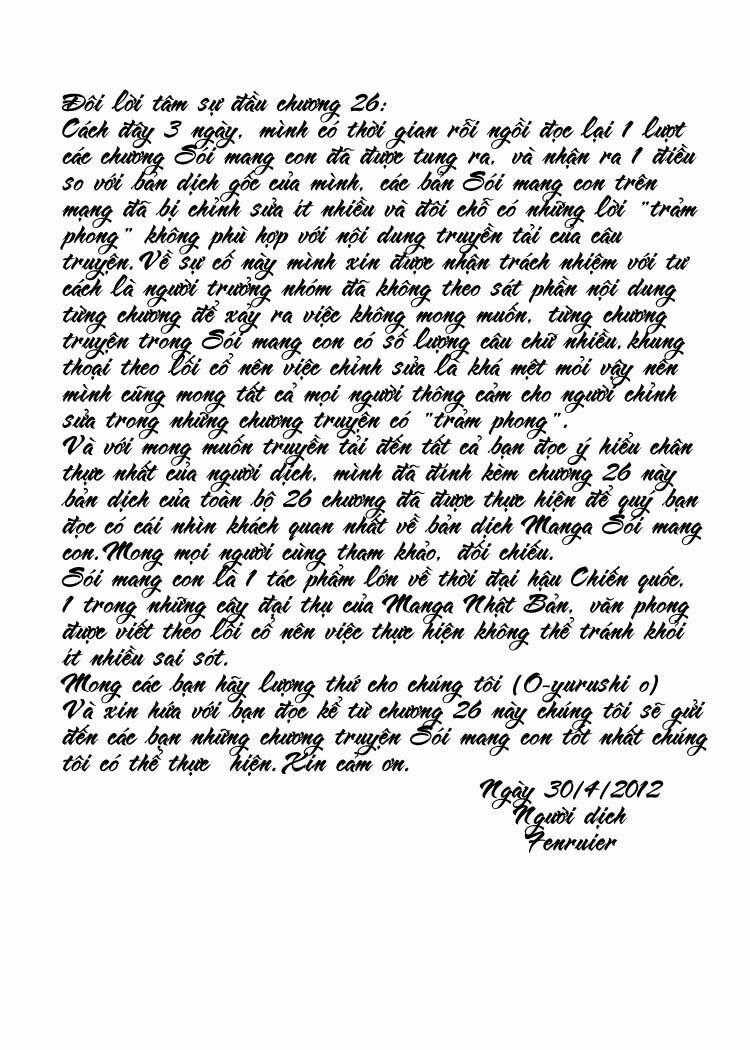 Đôi lời tâm sự đầu chương 26:
Cách đây 3 ngày, mình có thời gian rỗi ngồi đọc lại 1 lượt
các chương Sói mang con đã được tung ra, và nhận ra 1 điều
so với bản dịch gốc của mình, các bản Sói mang con trên
mạng đã bị chỉnh sửa ít nhiều và đôi chỗ có những lời "trảm
phong" không phù hợp với nội dung truyền tải của câu
truyện. Về sự cố này mình xin được nhận trách nhiệm với tư
cách là người trưởng nhóm đã không theo sát phần nội dung
từng chương để xảy ra việc không mong muốn, từng chương
truyện trong Sói mang con có số lương câu chữ nhiều, khung
thoại theo lối cổ nên việc chỉnh sửa là khá mệt mỏi vậy nên
mình cũng mong tất cả mọi người thông cảm cho người chỉnh
sửa trong những chương truyện có "trảm phong".
Và với mong muốn truyền tải đến tất cả bạn đọc ý hiểu chân
thực nhất của người dịch, mình đã đính kèm chương 26 này
bản dịch của toàn bộ 26 chương đã được thực hiện để quý bạn
đọc có cái nhìn khách quan nhất về bản dịch Manga Sói mang
con. Mong mọi người cùng tham khảo, đối chiếu.
Sói mang con là 1 tác phẩm lớn về thời đại hậu Chiến quốc,
1 trong những cây đại thụ của Manga Nhật Bản, văn phong
được viết theo lối cổ nên việc thực hiện không thể tránh khỏi
ít nhiều sai sót.
Mong các bạn hãy lượng thứ cho chúng tôi (O-yurushi o)
Và xin hứa với bạn đọc kể từ chương 26 này chúng tôi sẽ gửi
đến các bạn những chương truyện Sói mang con tốt nhất chúng
tôi có thể thực hiện. Xin cảm ơn.
Ngày 30/4/2012
Người dịch
Fenruier